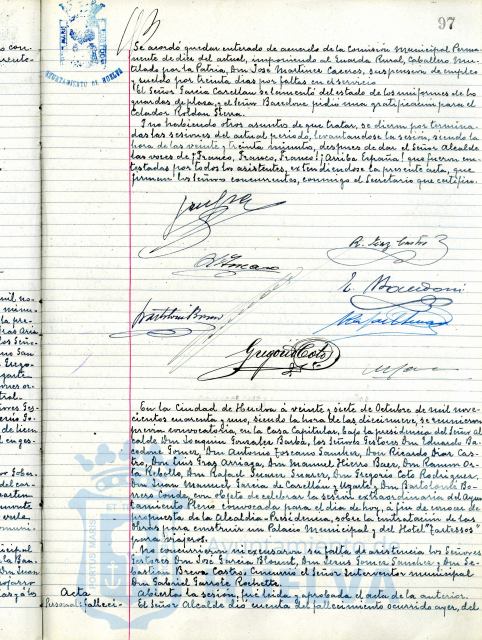 97
AYUNTAMIENTO DE HUELVA
Se acordó quedar enterado de acuerdo de la Comisión Municipal Perma-
nente de diez del actual, imponiendo al Guarda Rural, Caballero Mu-
tilado por la Patria, Don José Martínez Caceres, suspensión de empleo
y sueldo por treinta días por faltas en el servicio.
El Señor García Carellán se lamentó del estado de los uniformes de los
guardas de plaza, y el Señor Bacedone pidió una gratificación para el
Celador Roldán Piera.
Y no habiendo otros asuntos de que tratar, se dieron por termina-
das las sesiones del actual periodo, levantándose la sesión, siendo la
hora de las veinte y treinta minutos, después de dar el Señor Alcalde
las voces de ¡Franco, Franco, Franco! ¡Arriba España! que fueron con-
testadas por todos los asistentes, extendiéndose la presente acta, que
firman los Señores concurrentes, conmigo el Secretario que certifico.
R. Díaz Castro
Gregorio Coto
En la Ciudad de Huelva á veinte y siete de Octubre de mil nove-
cientos cuarenta y uno, siendo la hora de las diecinueve, se reunieron
previa convocatoria, en la Casa Capitular, bajo la presidencia del Señor Al-
calde Don Joaquín González Barba, los Señores Gestores Don Eduardo Ba-
cedone Gómez, Don Antonio Toscano Sánchez, Don Ricardo Díaz Cas-
tro, Don Luis Gras Arriaga, Don Manuel Hierro Báez, Don Ramón Or-
ta Rebollo, Don Rafael Suarez Suarez, Don Gregorio Coto Rodriguez,
Don Juan Manuel García de Carellán y Ugarte, Don Bartolomé Bo-
rrero Conde, con objeto de celebrar la sesión extraordinaria del Ayun-
tamiento Pleno convocada para el día de hoy, á fin de conocer de
propuesta de la Alcaldía-Presidencia, sobre la contratación de las
Obras para construir un Palacio Municipal y del Hotel "Tartessos"
para viajeros.
No concurrieron ni excusaron su falta de asistencia los Señores
Gestores Don José García Blount, Don Jesús Gómez Sánchez y Don Se-
bastián Brera Castro. Concurrió el Señor Interventor municipal
Don Gabriel Garrote Rochette.
Acta
Abierta la sesión, fué leida y aprobada el acta de la anterior.
Personal: Falleci-
El Señor Alcalde dió cuenta del fallecimiento ocurrido ayer, del